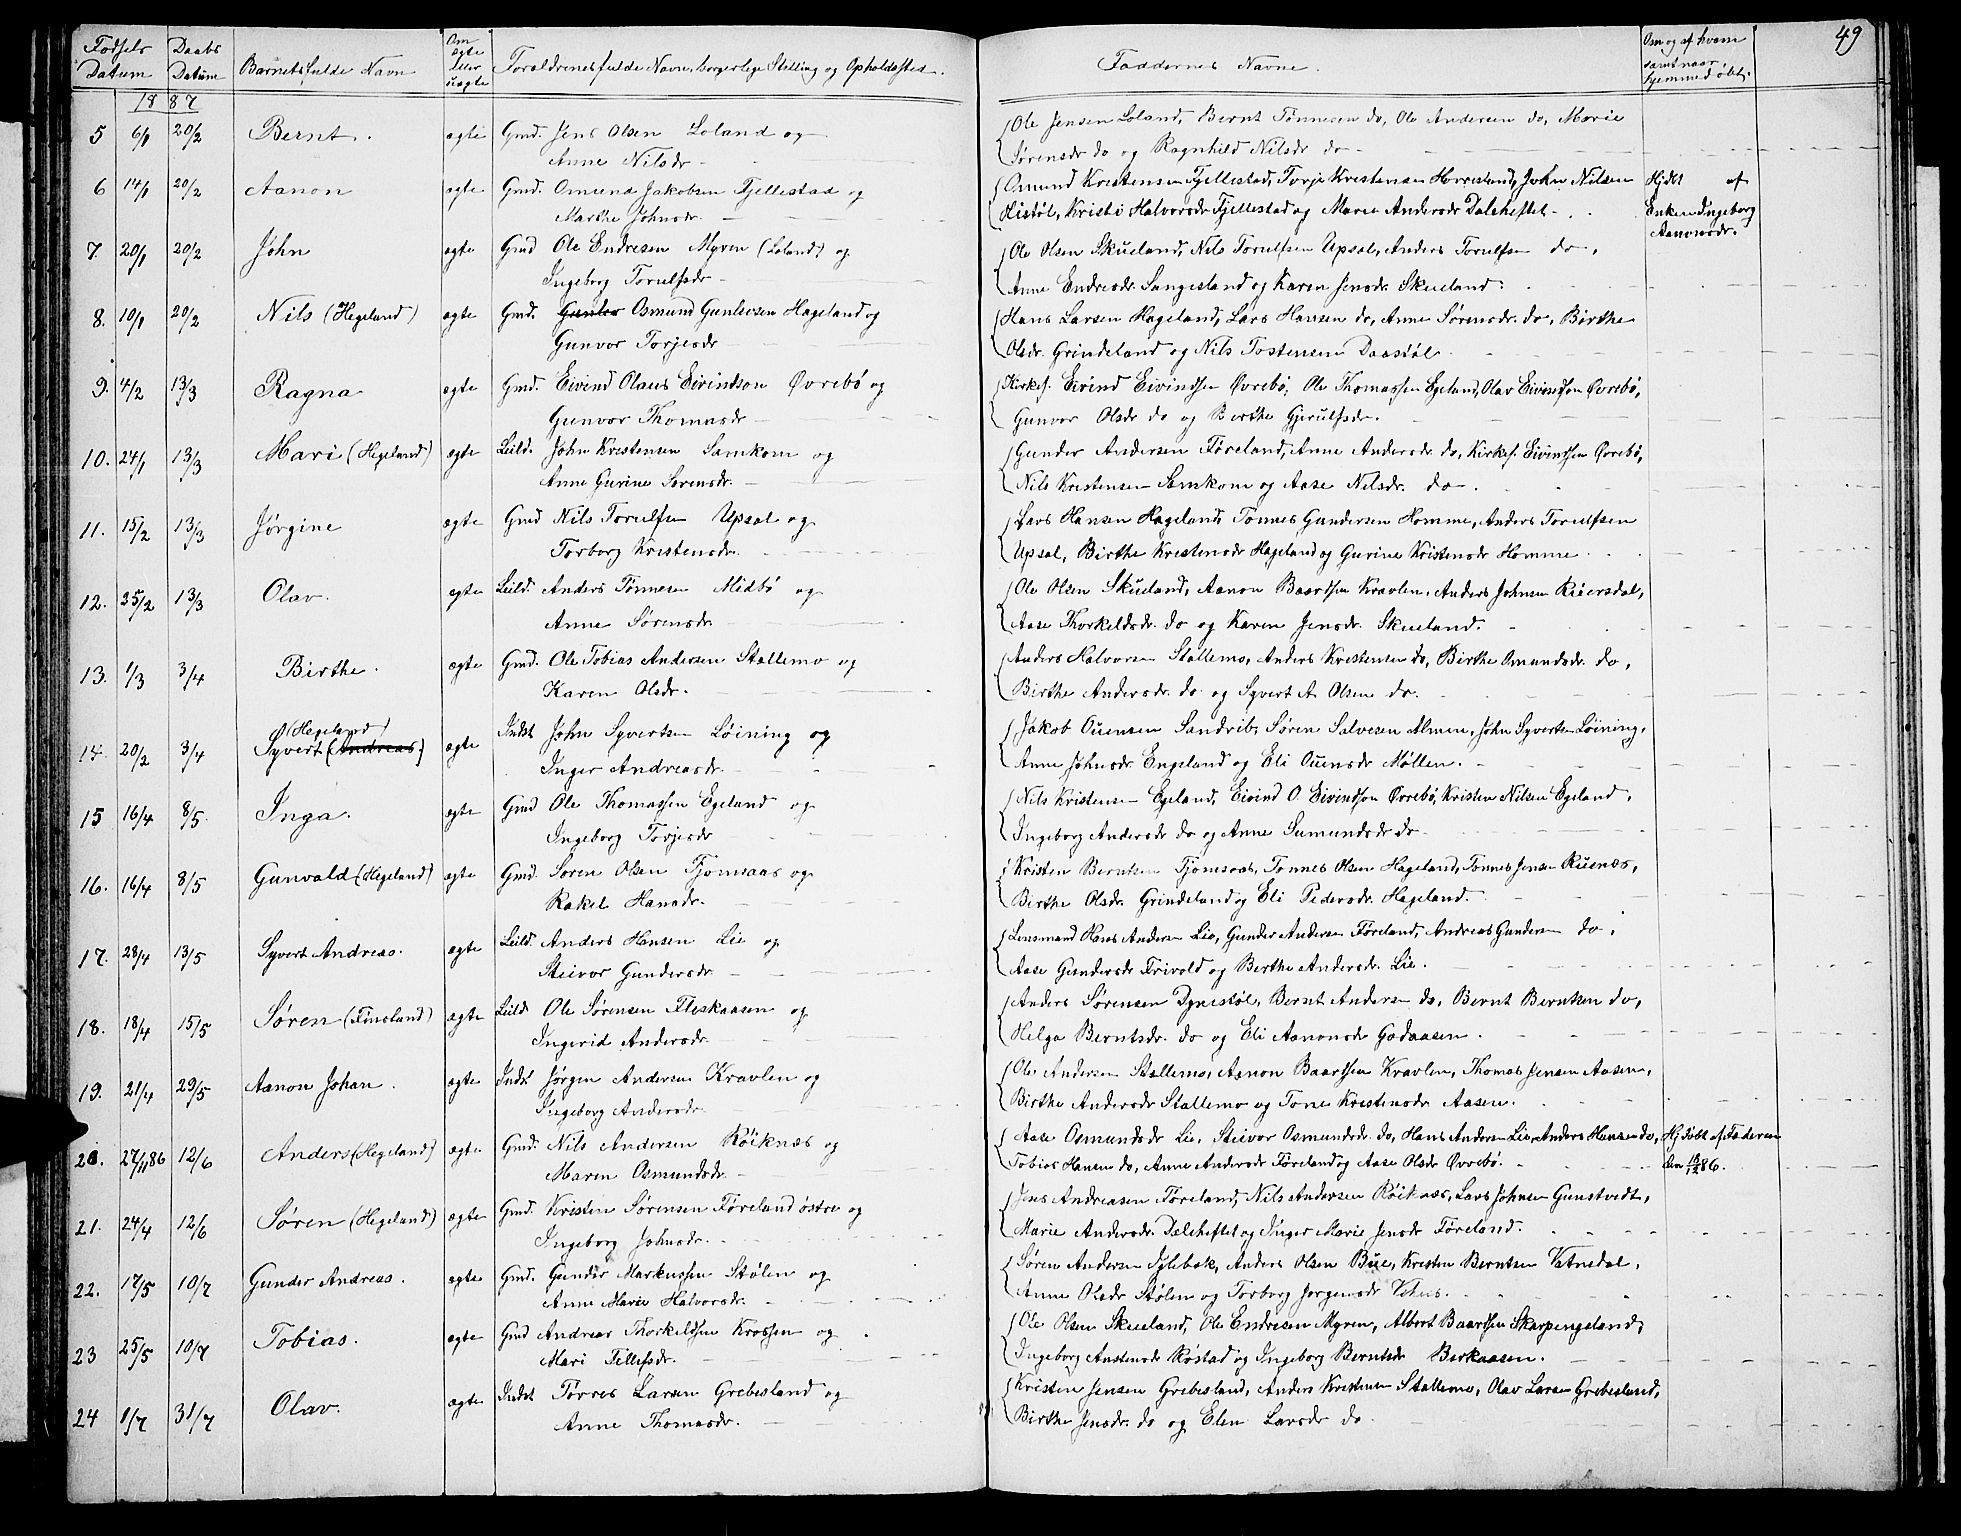 49
Fødsels Datum
Daabs Datum
Barnets fulde Navn
Om ægte eller uægte
Forældrenes fulde Navn, borgerlige Stilling og Opholdssted.
Faddernes Navne.
Om og af hvem samt naar hjemmedøbt.
1887
5 6/1 20/2 Bernt. ægte Gmd. Jens Olsen Loland og
Anne Nilsdr
Ole Jensen Loland, Bernt Tønnesen do, Ole Andersen do, Marie
Sørensdr do og Ragnhild Nilsdr do
6 14/1 20/2 Aanon ægte Gmd. Omund Jakobsen Fjellestad og
Marthe Johnsdr.
Omund Kristensen Fjellestad, Torje Kristensen Hovesland, John Nilsen
Histøl, Kristi Halvorsdr Fjellestad og Marie Andersdr Daleheftet
Hjdbt af
Enken Ingeborg
Aanonsdr.
7. 20/1 20/2 John ægte Gmd Ole Endresen Myren (Loland) og
Ingeborg Torulfsdr
Ole Olsen Skueland, Nils Torulfsen Upsal, Anders Torulfsen do,
Anne Endresdr Sangesland og Karen Jensdr Skueland.
8. 10/1 20/2 Nils (Hegeland) ægte Gmd. Gunlev Osmund Gunlevsen Hageland og
Gunvor Torjesdr
Hans Larsen Hageland, Lars Hansen do, Anne Sørensdr. do, Birthe
Olsdr. Grindeland og Nils Tostensen Daastøl
9. 4/2 13/3 Ragna ægte Gmd. Eivind Olaus Eivindson Øvrebø og
Gunvor Thomasdr
Kirkes. Eivind Eivindsen Øvrebø, Ole Thomassen Egeland, Olav Eivindson Øvrebø,
Gunvor Olsdr do og Berthe Gjerulfsdr.
10. 24/1 13/3 Mari (Hegeland) ægte Leild. John Kristensen Samkom og
Anne Gurine Sørensdr.
Gunder Andersen Føreland, Anne Andersdr do, Kirkes. Eivindsen Øvrebø,
Nils Kristensen Samkom og Aase Nilsdr. do
11. 15/2 13/3 Jørgine ægte Gmd Nils Torulfsen Upsal og
Torborg Kristensdr.
Lars Hansen Hageland, Tønnes Gundersen Homme, Anders Torulfsen
Upsal, Birthe Kristensdr Hageland og Gurine Kristensdr Homme
12. 25/2 13/3 Olav. ægte Leild. Anders Tønnesen Midbø og
Anne Sørensdr.
Ole Olsen Skueland, Aanon Baardsen Kravlen, Anders Johnsen Reiersdal,
Aase Thorkeldsdr. do og Karen Jensdr. Skueland.
13. 1/3 3/4 Birthe. ægte Gmd. Ole Tobias Andersen Stallemo og
Karen Olsdr.
Anders Halvorsen Stallemo, Anders Kristensen do, Birthe Omundsdr. do,
Birthe Andersdr. do og Syvert A. Olsen do.
14. 20/2 3/4 (Hegeland)
Syvert (Andreas) ægte Indst John Syvertsen Løining og
Inger Andreasdr.
Jakob Ouensen Sandrib, Søren Salvesen Almen, John Syvertsen Løining,
Anne Johnsdr. Engeland og Eli Ouensdr Møllen.
15 16/4 8/5 Inga. ægte Gmd Ole Thomassen Egeland og
Ingeborg Torjesdr
Nils Kristensen Egeland, Eivind O. Eivindson Øvrebø, Kristen Nilsen Egeland,
Ingeborg Andersdr do og Anne Sumundsdr do
16. 16/4 8/5 Gunvald (Hegeland) ægte Gmd. Søren Olsen Tjomsaas og
Rakel Hansdr.
Kristen Berntsen Tjomsaas, Tønnes Olsen Hageland, Tønnes Jensen Ruenæs,
Birthe Olsdr. Grindeland og Eli Pedersdr. Hageland.
17. 28/4 13/5 Syvert Andreas. ægte Leild. Anders Hansen Lie og
Steivor Gundersdr.
Lensmand Hans Andersen Lie, Gunder Andersen Føreland, Andreas Gundersen do,
Aase Gundersdr Frivold og Berthe Andersdr. Lie.
18. 18/4 15/5 Søren (Finsland) ægte Leild Ole Sørensen Fleskaasen og
Ingerid Andersdr.
Anders Sørensen Dynestøl, Bernt Andersen do, Bernt Berntsen do,
Helga Berntsdr. do og Eli Aanonsdr Godaasen
19. 21/4 29/5 Aanon Johan. ægte Indst Jørgen Andersen Kravlen og
Ingeborg Andersdr.
Ole Andersen Stallemo, Aanon Baardsen Kravlen, Thomas Jensen Aasen,
Birthe Andersdr Stallemo og Tone Kristensdr Aasen.
20. 27/11 86 12/6 Anders (Hegeland) ægte Gmd. Nils Andersen Røiknæs og
Maren Osmundsdr.
Aase Osmundsdr Lie, Steivor Osmundsdr. do, Hans Andersen Lie, Anders Hansen do,
Tobias Hansen do, Anne Andersdr Føreland og Aase Olsdr Øvrebø.
Hjdøbt af Faderen
den 18/12 86.
21. 24/4 12/6 Søren (Hegeland) ægte Gmd. Kristen Sørensen Føreland østre og
Ingeborg Johnsdr.
Jens Andreasen Føreland, Nils Andersen Røiknæs, Lars Johnsen Gunstvedt,
Marie Andersdr. Daleheftet og Inger Marie Jensdr Føreland.
22. 17/5 10/7 Gunder Andreas. ægte Gmd. Gunder Markussen Stølen og
Anne Marie Halvorsdr.
Søren Andersen Iglebæk, Anders Olsen Bue, Kristen Berntsen Vatnedal,
Anne Olsdr Stølen og Torborg Jørgensdr Vehus.
23 25/5 10/7 Tobias. ægte Gmd Andreas Thorkeldsen Krossen og
Mari Tellefsdr.
Ole Olsen Skueland, Ole Endresen Myren, Albert Baardsen Skarpengeland,
Ingeborg Austensdr Røstad og Ingeborg Berntsdr Birkaasen.
24 1/7 31/7 Olav. ægte Indst Tørres Larsen Grebesland og
Anne Thomasdr.
Kristen Jensen Grebesland, Anders Kristensen Stallemo, Olav Larsen Grebesland,
Birthe Jensdr. do og Elen Larsdr do